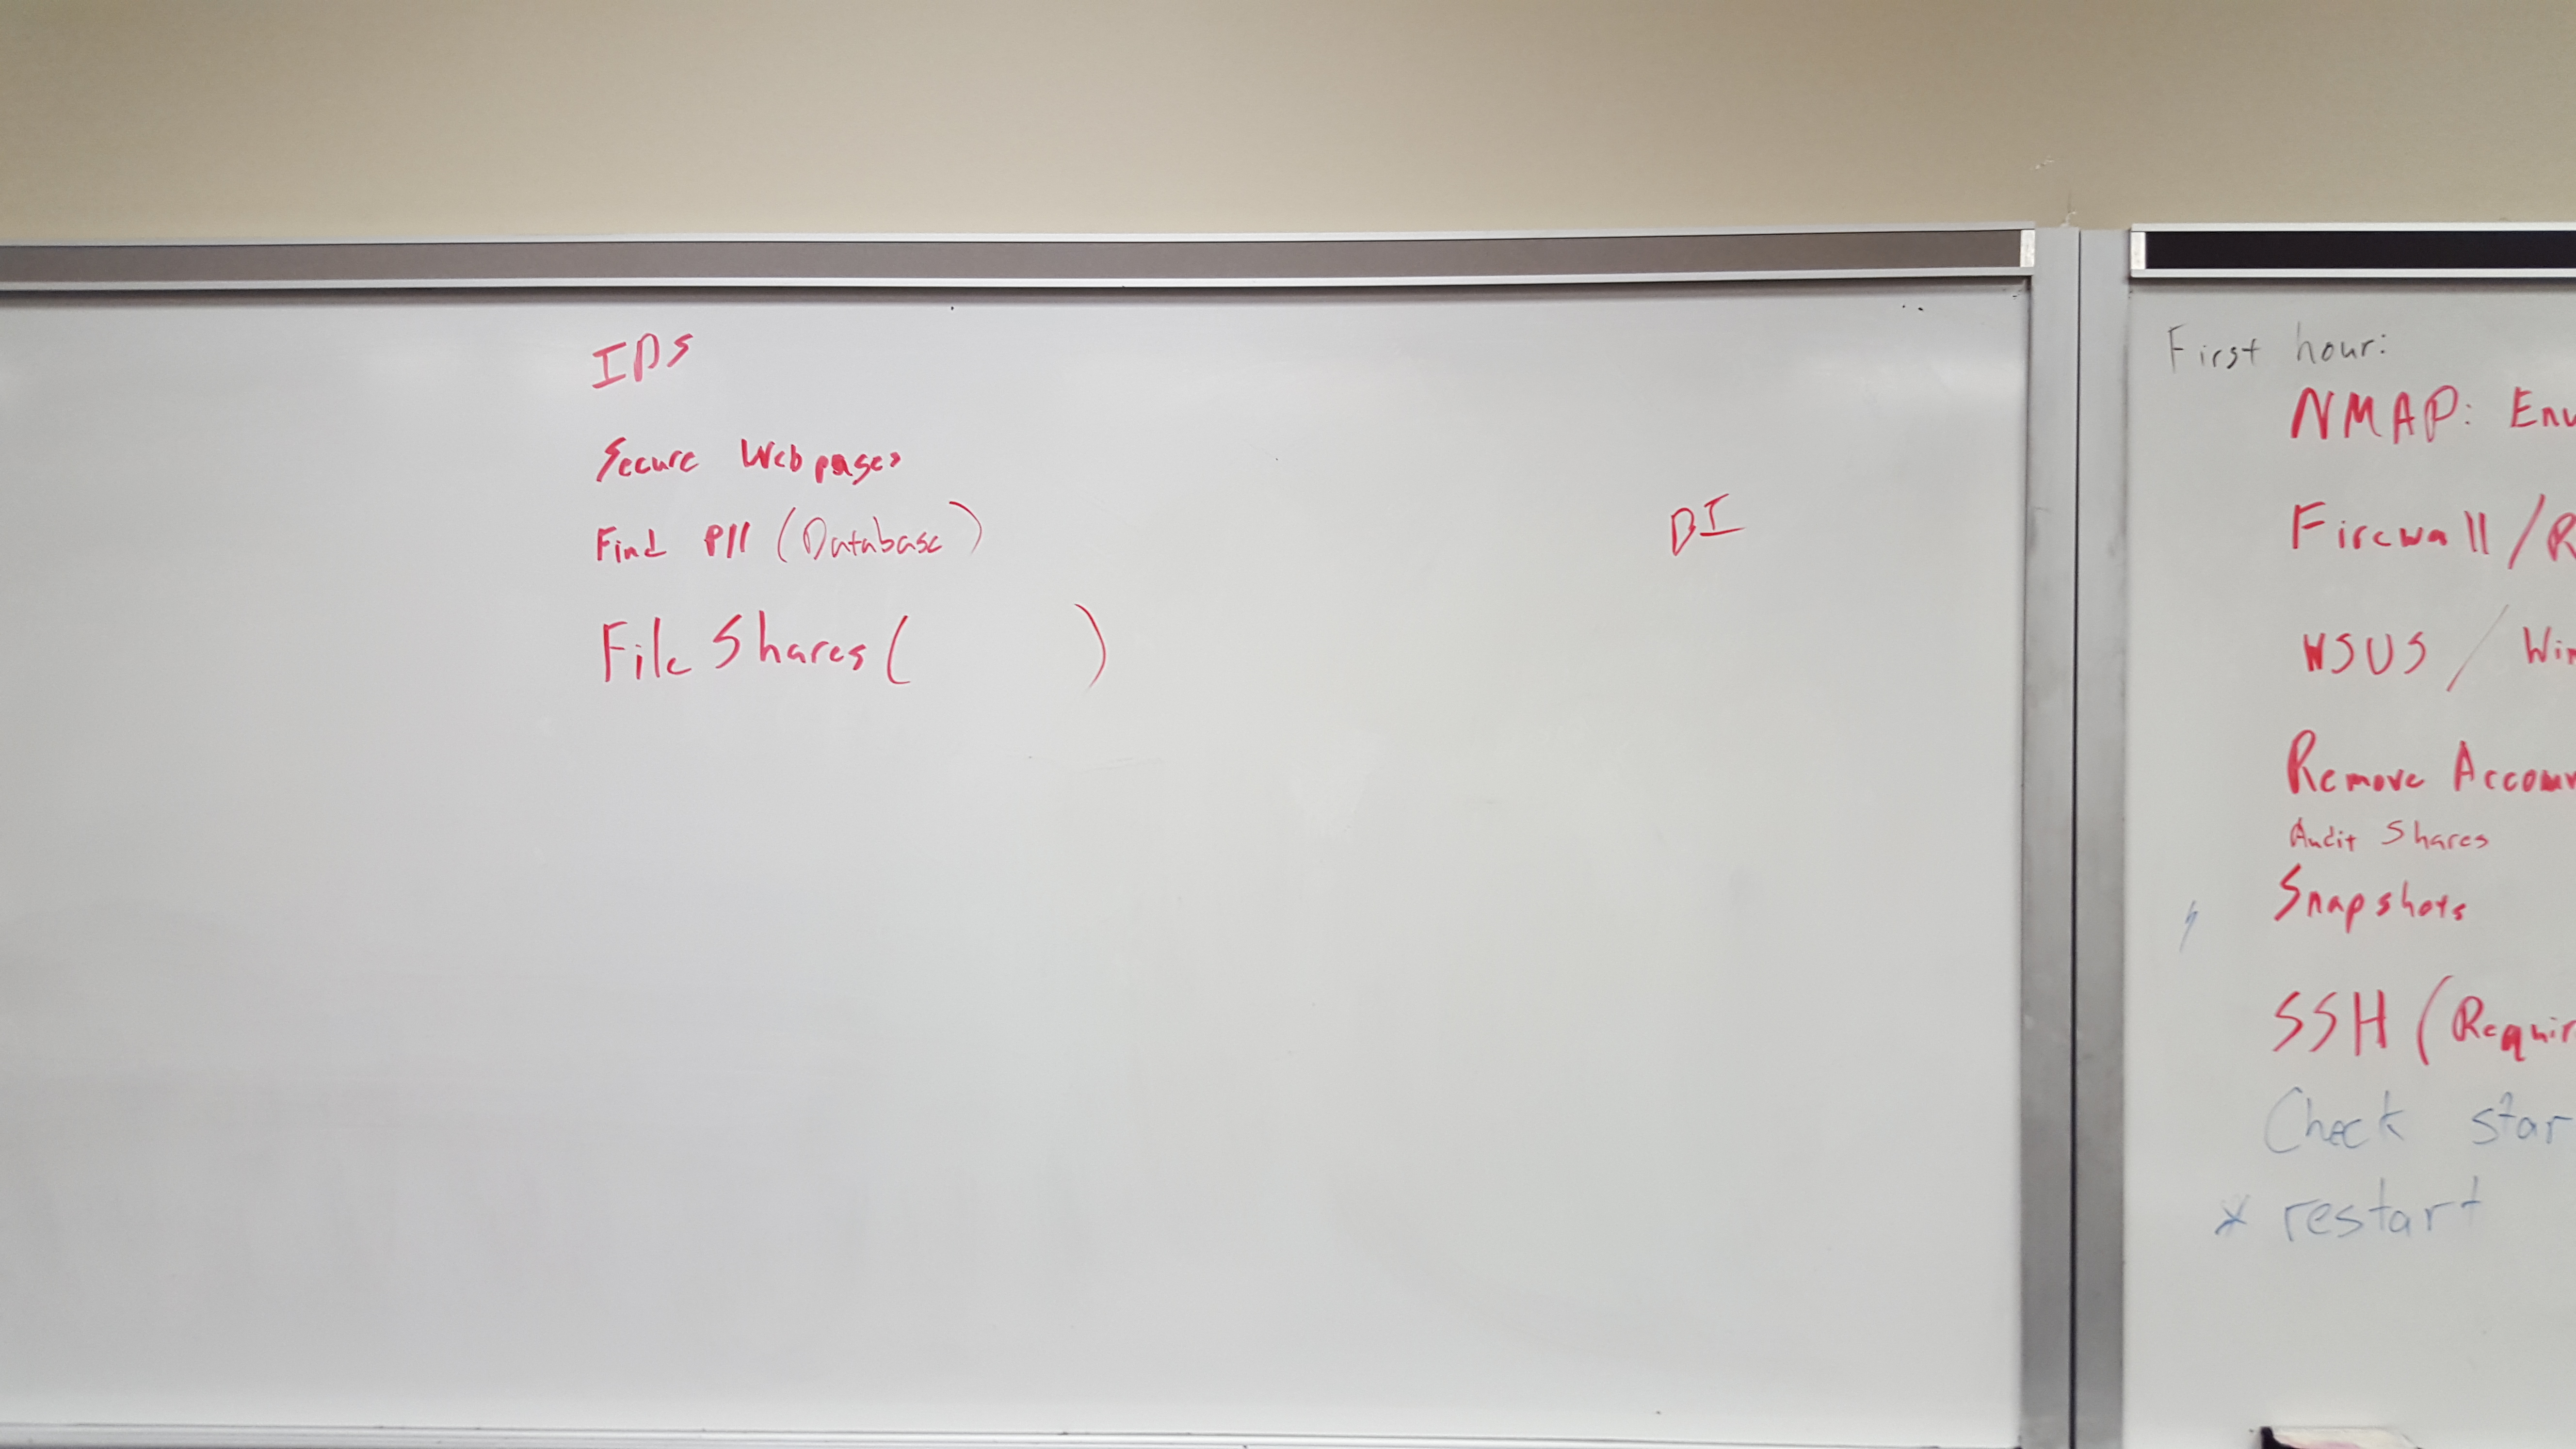 IDS
Secure Webpages
Find PII (Database)
DI
File Shares ( )
First hour:
NMAP: Enu
Firewall / R
WSUS / Win
Remove Accoun
Audit Shares
Snapshots
SSH (Requir
Check star
* restart